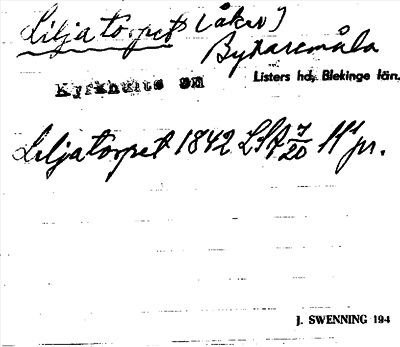 Liljatorpet [åker]
Bykaremåla
Kyrkhults sn Listers hd, Blekinge län.
Liljatorpet 1842 LSA 7/20 11' pr.
J. SWENNING 194